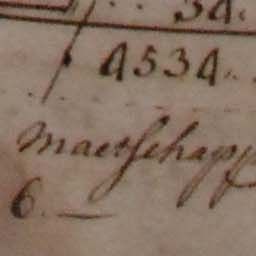 34.
4534..
Maetschapp
6. —